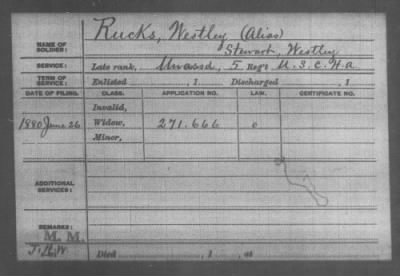 Rucks, Westley (Alias)
NAME OF SOLDIER: Stewart, Westley
SERVICE: Late rank, Unassd, 5 Reg't U. S. C. H. A.
TERM OF SERVICE: Enlisted , 1 Discharged , 1
DATE OF FILING. CLASS. APPLICATION NO. LAW. CERTIFICATE NO.
Invalid,
1880 June 26 Widow, 271.666 0
Minor,
ADDITIONAL SERVICES:
REMARKS: M. M.
Died , 1 , at